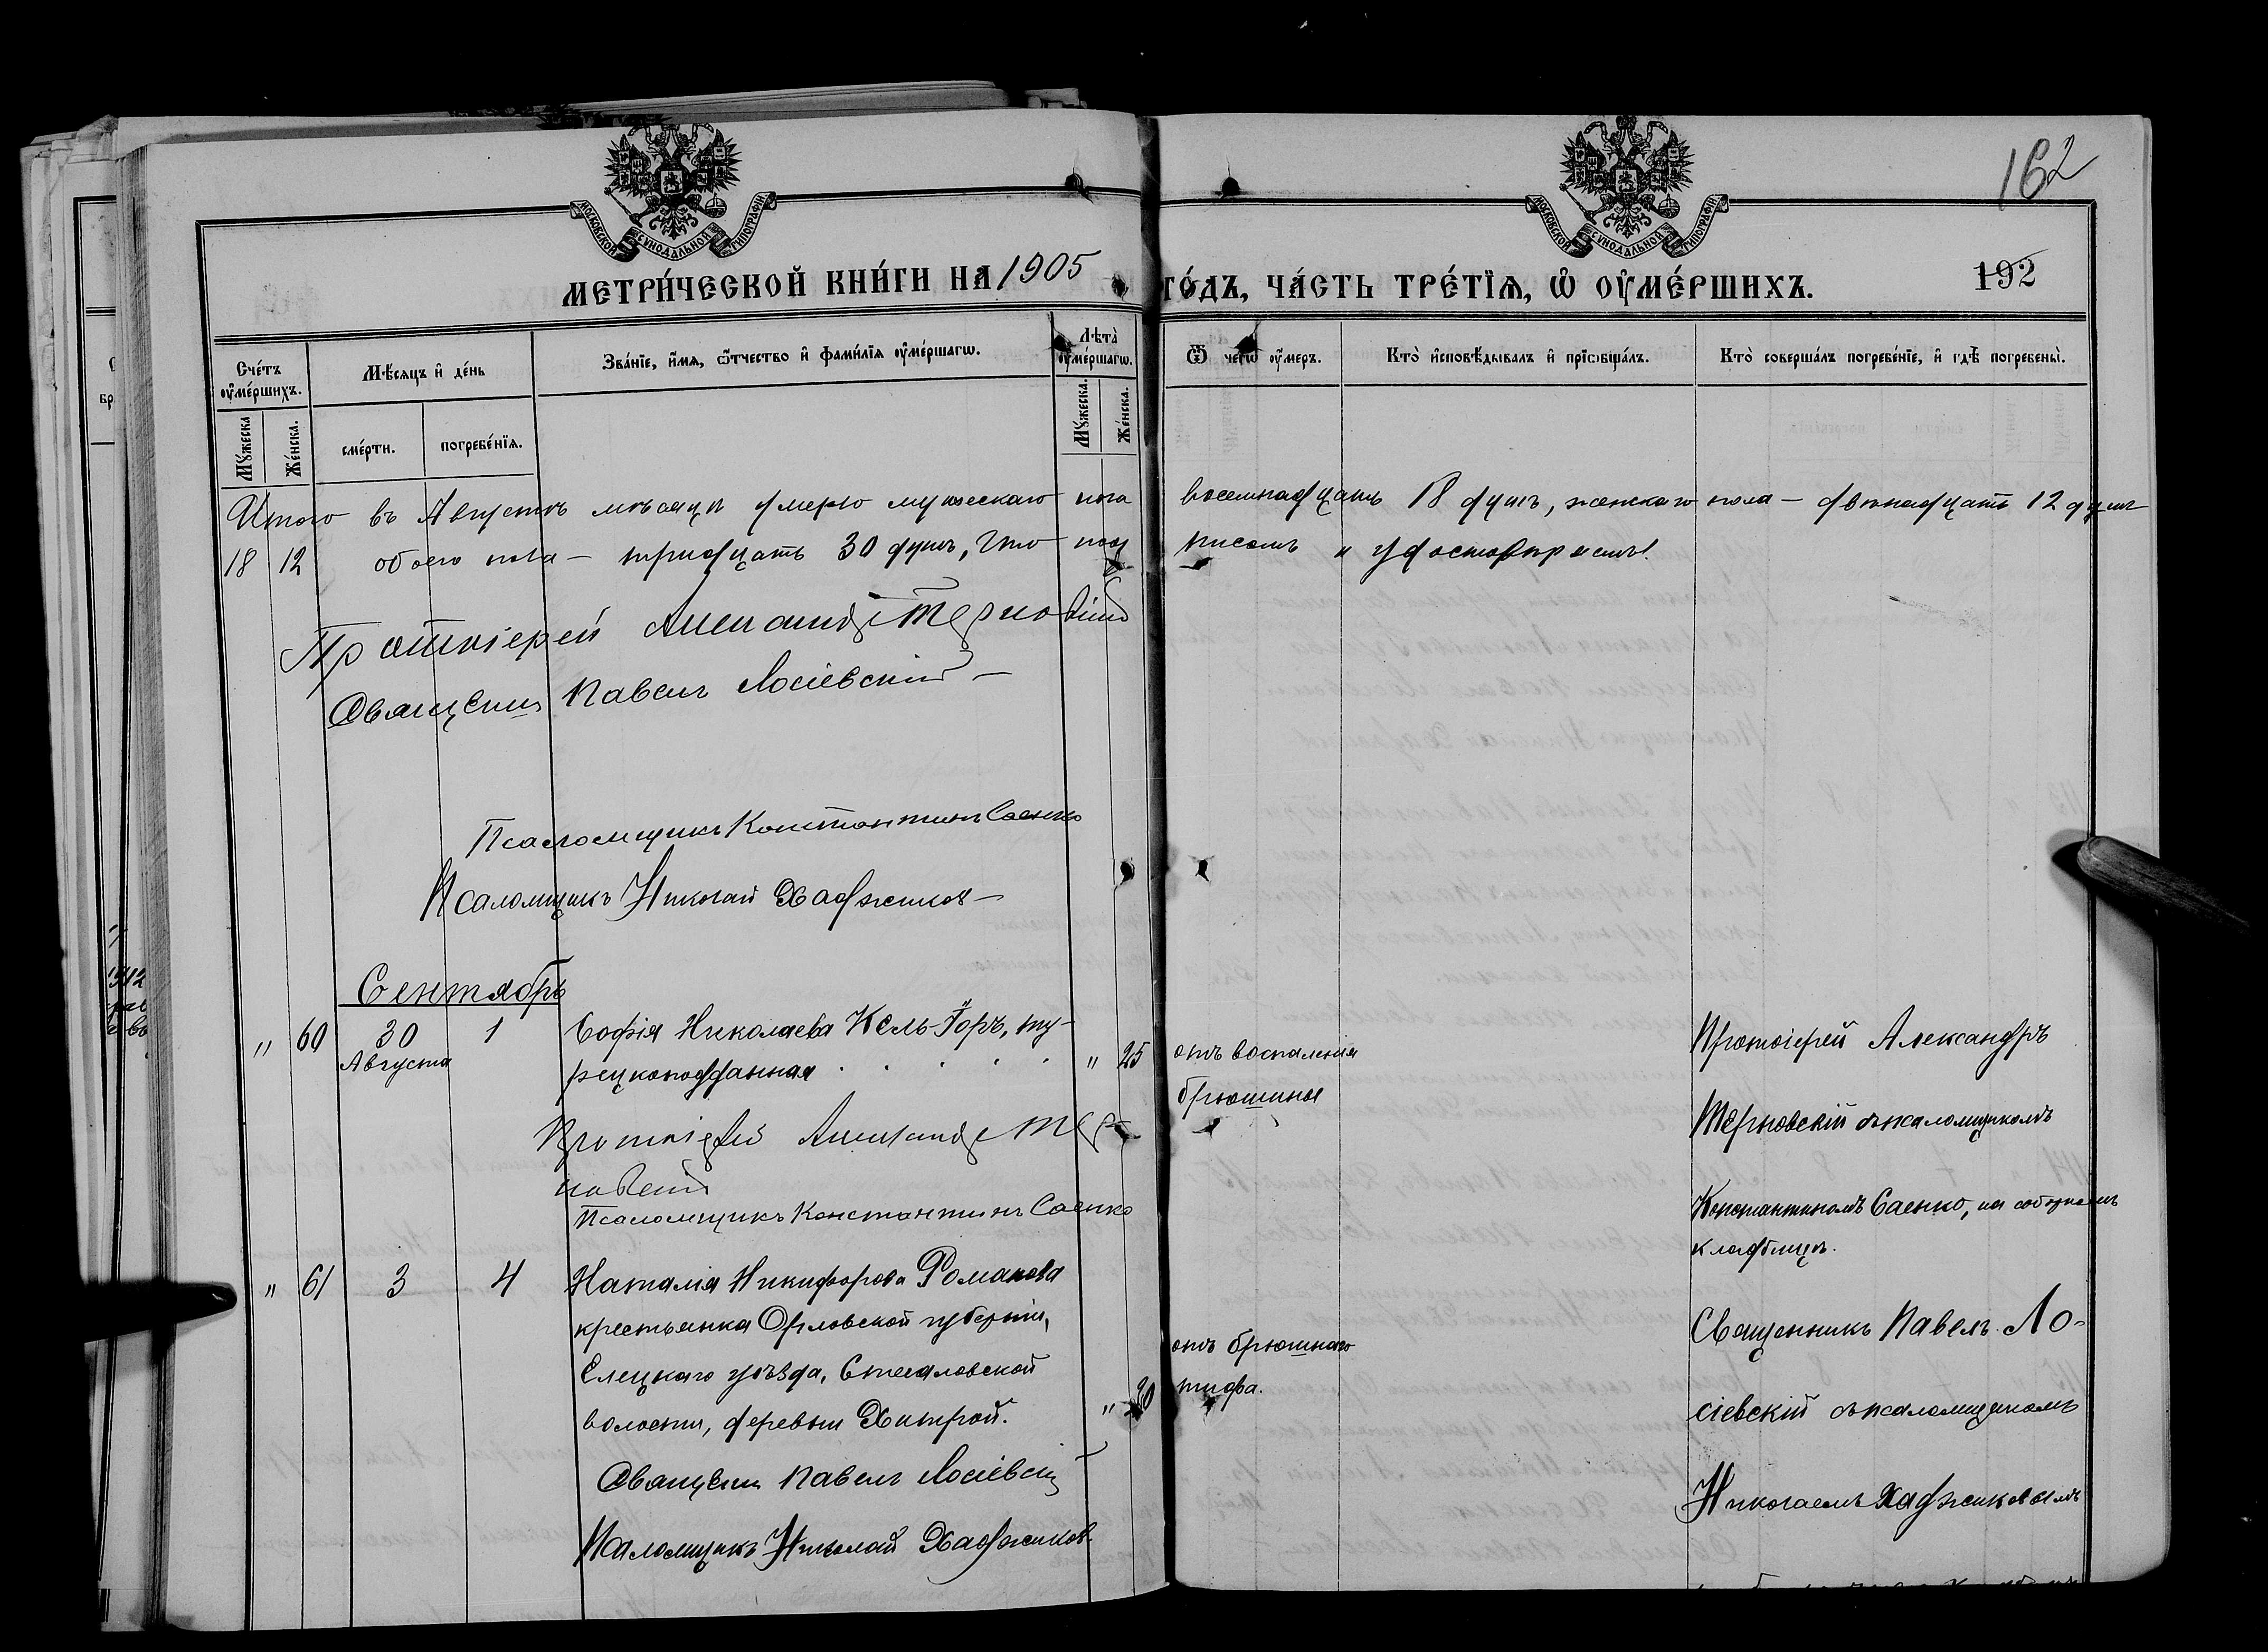 162
МОСКОВСКОЙ СѴНОДАЛЬНОЙ ТИПОГРАФІИ
МОСКОВСКОЙ СѴНОДАЛЬНОЙ ТИПОГРАФІИ
МЕТРИ́ЧЕСКОЙ КНИ́ГИ НА 1905 ГО́ДЪ, ЧА́СТЬ ТРЕ́ТЇѦ, Ѡ ОУМЕ́РШИХЪ. 192
Сче́тъ оумершихъ.
Мѣ́сяцъ и де́нь
Зва́нїе, и́мя, ѿтчество и фами́лїя оуме́ршагѡ.
Лѣта̀ оуме́ршагѡ.
Ѿ чегѡ̀ оу́меръ.
Кто̀ исповѣ́дывалъ и прїѡбща́лъ.
Кто̀ соверша́лъ погребе́нїе, и гдѣ̀ погребены̀.
Му́жеска
Же́нска.
сме́рти.
погребе́нїя.
Му́жеска.
Же́нска.
Итого въ Августѣ мѣсяцѣ умерло мужескаго пола восемнадцать 18 душъ, женскаго пола — двѣнадцать 12 душъ
18 12 обоего пола — тридцать 30 душъ, что подписомъ и удостовѣряемъ!
Протоіерей Александръ Терновскій
Священникъ Павелъ Лосіевскій —
Псаломщикъ Константинъ Саенко
Псаломщикъ Николай Хаджиков —
Сентябрь
" 60 30 1 Софія Николаева Кель-Їоръ, ту-
Августа рецкоподданная . . . . . " 25
отъ воспаленія
брюшины
Протоіерей Александръ
Терновскій съ псаломщикомъ
Константиномъ Саенко, на соборномъ
кладбищѣ.
Протоіерей Александръ Тер-
новскій
Псаломщикъ Константинъ Саенко
" 61 3 4 Наталія Никифорова Романова
крестьянка Орловской губерніи,
Елецкаго уѣзда,
волости, деревни Хитрой. " 20
отъ брюшнаго
тифа.
Священникъ Павелъ Ло-
сіевскій съ псаломщикомъ
Николаемъ Хаджиковымъ
Священникъ Павелъ Лосіевскій
Псаломщикъ Николай Хаджиков